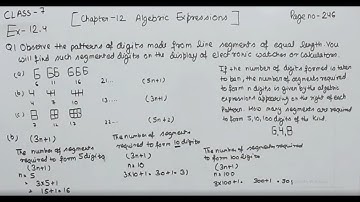 CLASS-7
[Chapter-12 Algebric Expressions]
Page no-246
Ex-12.4
Q1 Observe the patterns of digits made from line segments of equal length You
will find such segmented digits on the display of electronic watches or calculators.
(a) 6 66 666
6 11 16 21... (5n+1)
(b) 4 7 10 13... (3n+1)
(c) 7 12 17 22... (5n+2)
If the number of digits formed is taken
to be n, the number of segments required
to form n digits is given by the algebraic
expression appearing on the right of each
Pattern How many segments are required
to form 5, 10, 100 digits of the kind.
6, 4, 8
(b) (3n+1)
The number of segments
required to form 5 digits
(3n+1)
n=5
3×5+1
= 15+1=16
The number of segments
required to form 10 digits
(3n+1)
n=10
3×10+1= 30+1=31
The number of segments required
to form 100 digits
(3n+1)
n=100
3×100+1 300+1